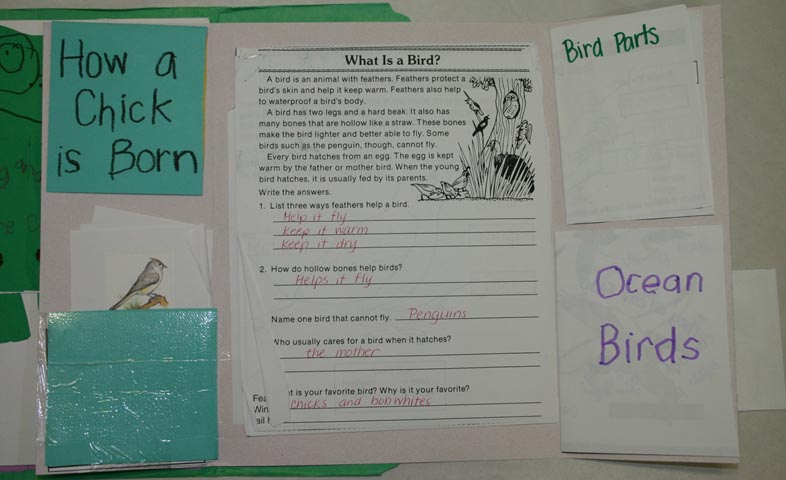 How a
Chick
is Born
What Is a Bird?
A bird is an animal with feathers. Feathers protect a
bird's skin and help it keep warm. Feathers also help
to waterproof a bird's body.
A bird has two legs and a hard beak. It also has
many bones that are hollow like a straw. These bones
make the bird lighter and better able to fly. Some
birds such as the penguin, though, cannot fly.
Every bird hatches from an egg. The egg is kept
warm by the father or mother bird. When the young
bird hatches, it is usually fed by its parents.
Write the answers.
1. List three ways feathers help a bird.
Help it fly
keep it warm
keep it dry
2. How do hollow bones help birds?
Helps it fly
Name one bird that cannot fly. Penguins
Who usually cares for a bird when it hatches?
the mother
it is your favorite bird? Why is it your favorite?
chicks and bobwhites
Fea
Win
ail f
Bird Parts
Ocean
Birds